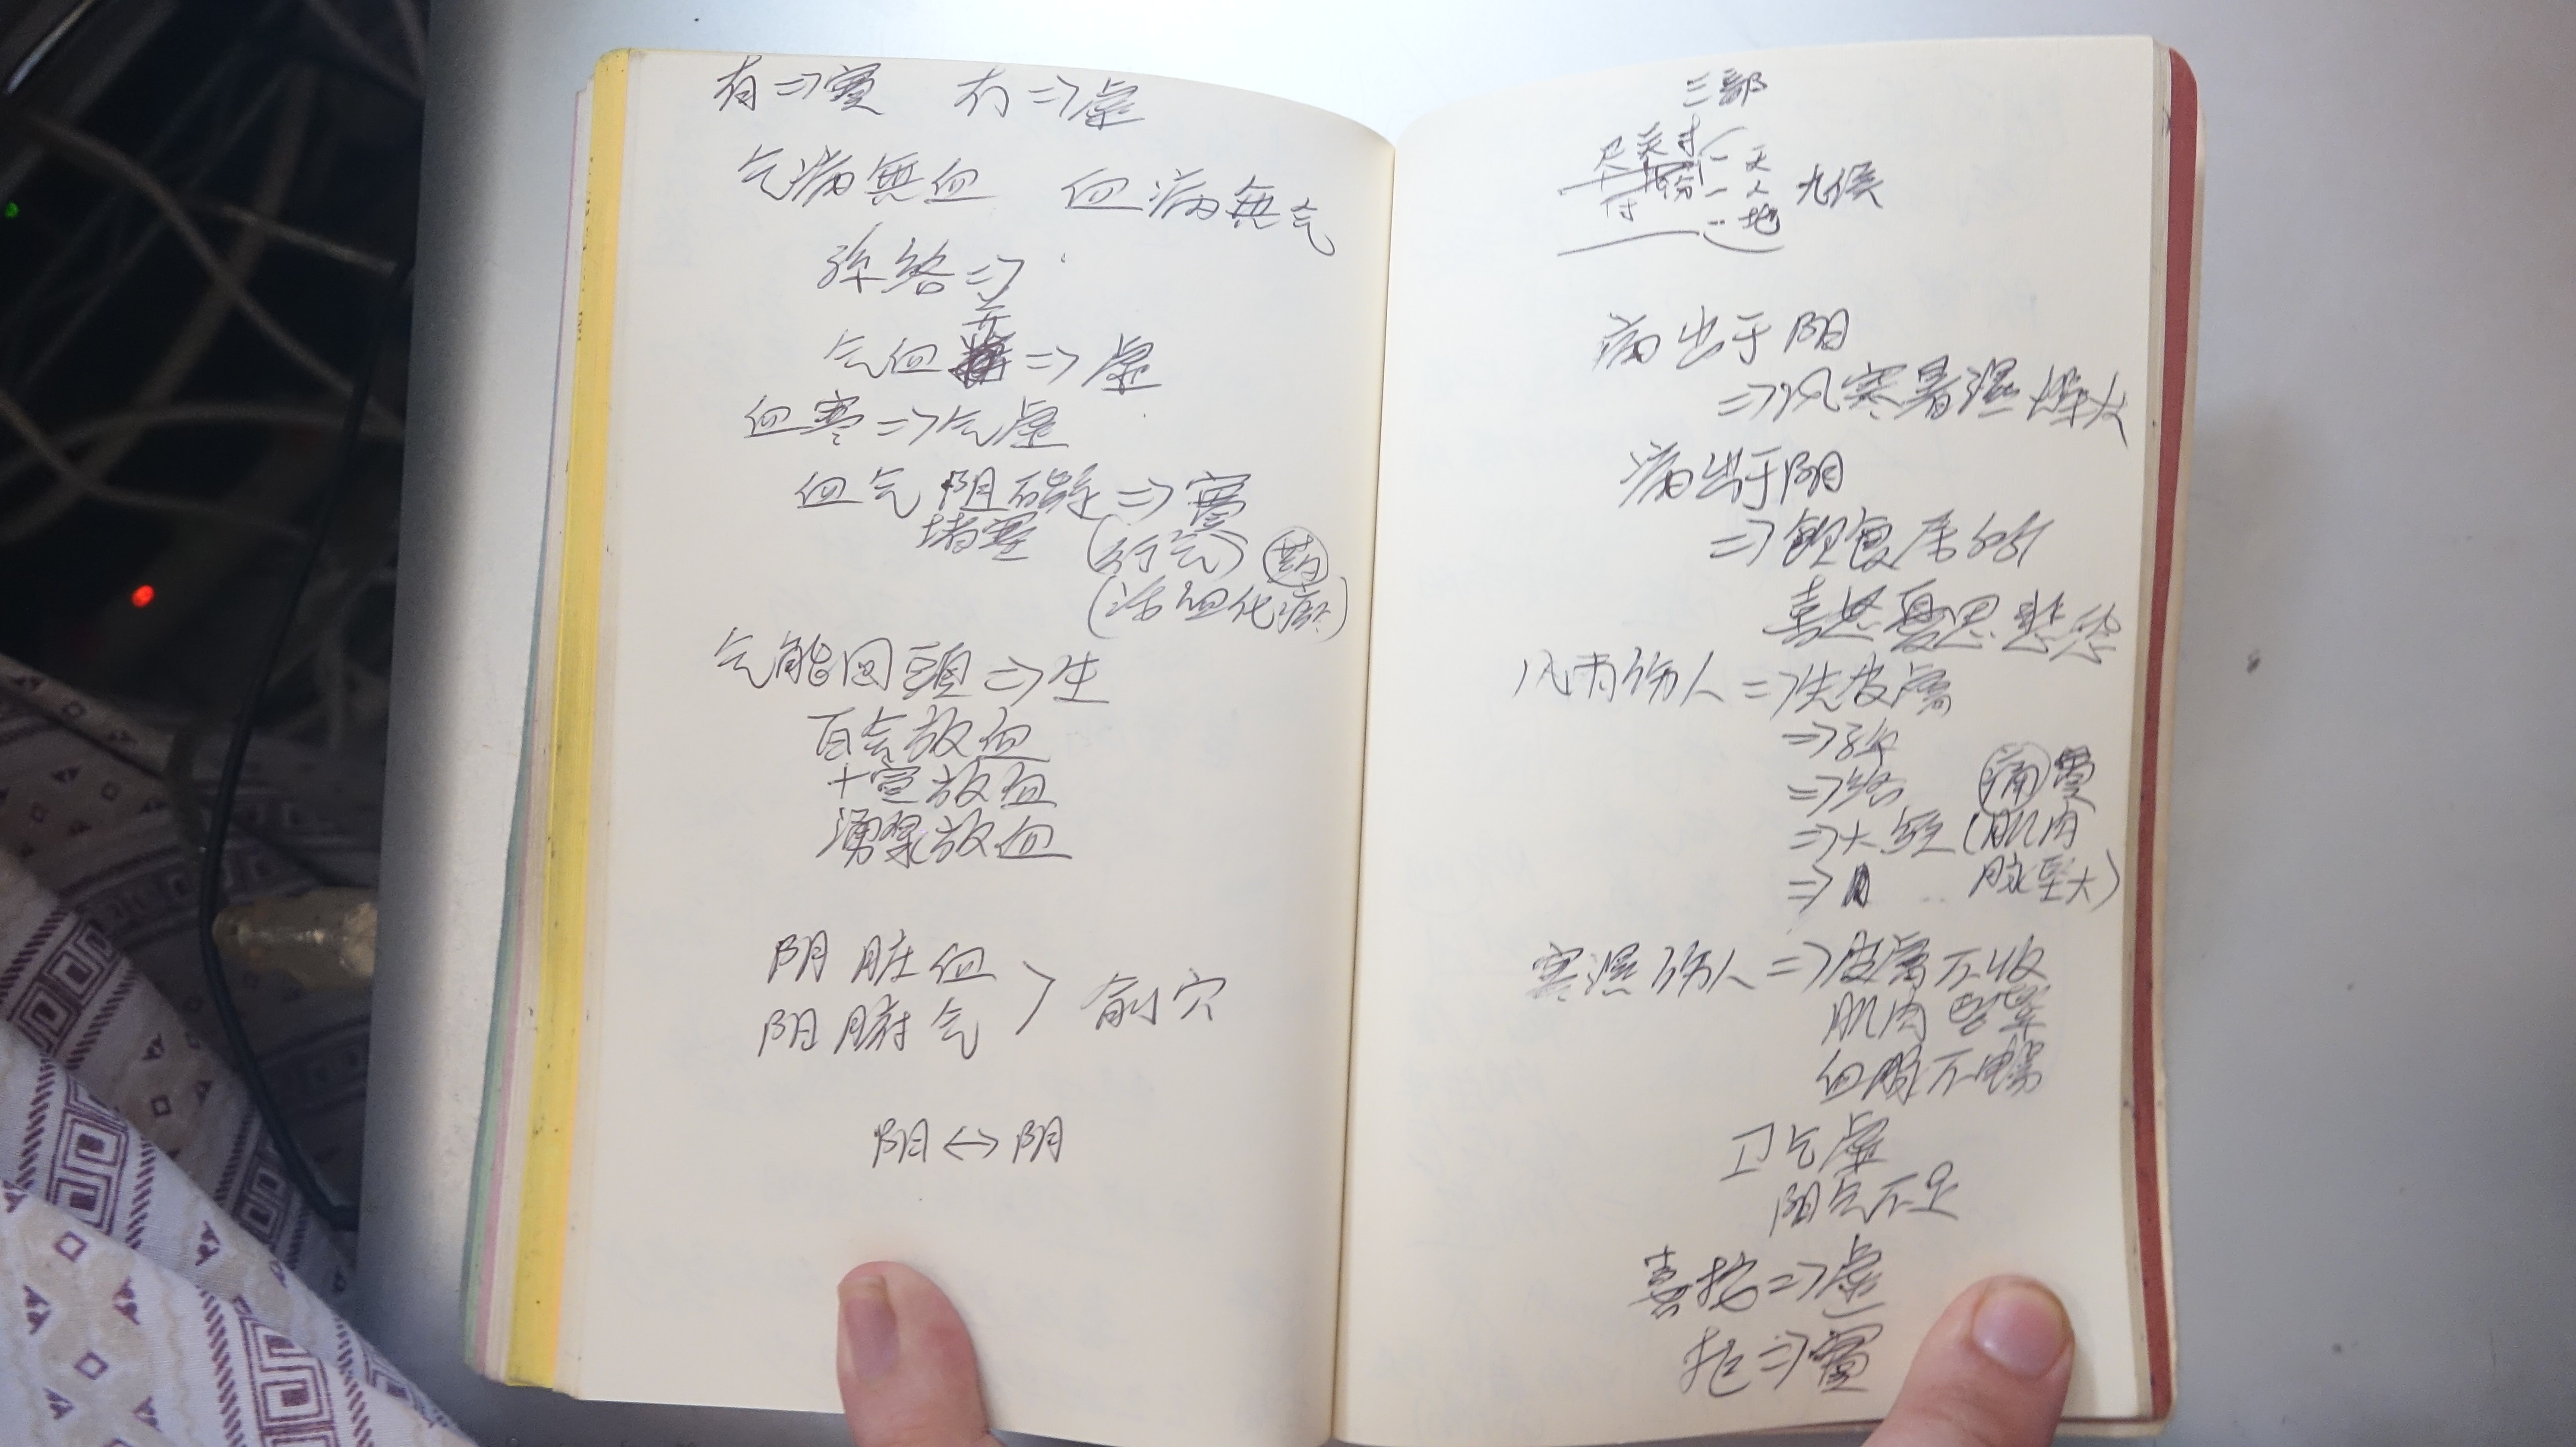 有⇒實 冇⇒虛
气病無血 血病無气
孫络⇒
气血 并⇒虛
血寒⇒气虛
血气阻碍⇒實
堵塞 (行气) 药
(活血化瘀)
气能回頭⇒生
百会放血
十宣放血
湧泉放血
阴脏血
阳腑气 > 俞穴
阳↔阴
三部
尺关寸 一天
一人 九侯
一地
病出于阳
⇒风寒暑濕燥火
病出于阴
⇒飲食居
喜怒憂思悲恐
风雨伤人⇒先皮膚
⇒孫
⇒络 痛 實
⇒大经 (肌肉
⇒ 脉堅大)
寒濕伤人⇒皮膚不收
肌肉堅緊
血脈不暢
卫气虛
阳气不足
喜按⇒虛
拒⇒實